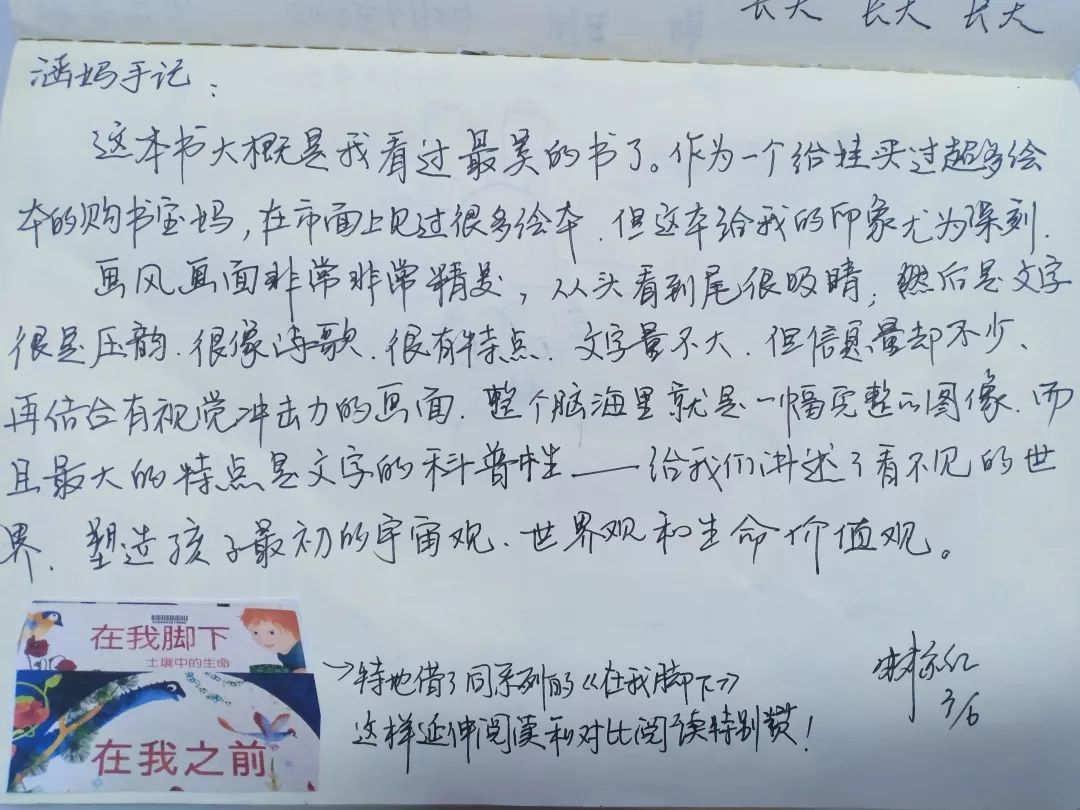 长大 长大 长大
涵妈手记：
这本书大概是我看过最美的书了。作为一个给娃买过超多绘
本的购书宝妈，在市面上见过很多绘本、但这本给我的印象尤为深刻.
画风画面非常非常精美，从头看到尾很吸睛；然后是文字
很是压韵.很像诗歌.很有特点.文字量不大.但信息量却不少、
再结合有视觉冲击力的画面.整个脑海里就是一幅完整的图像.而
且最大的特点是文字的科普性——给我们讲述了看不见的世
界.塑造孩子最初的宇宙观、世界观和生命价值观。
在我脚下
土壤中的生命
在我之前
→特地借了同系列的《在我脚下》
这样延伸阅读和对比阅读特别赞！
7/6